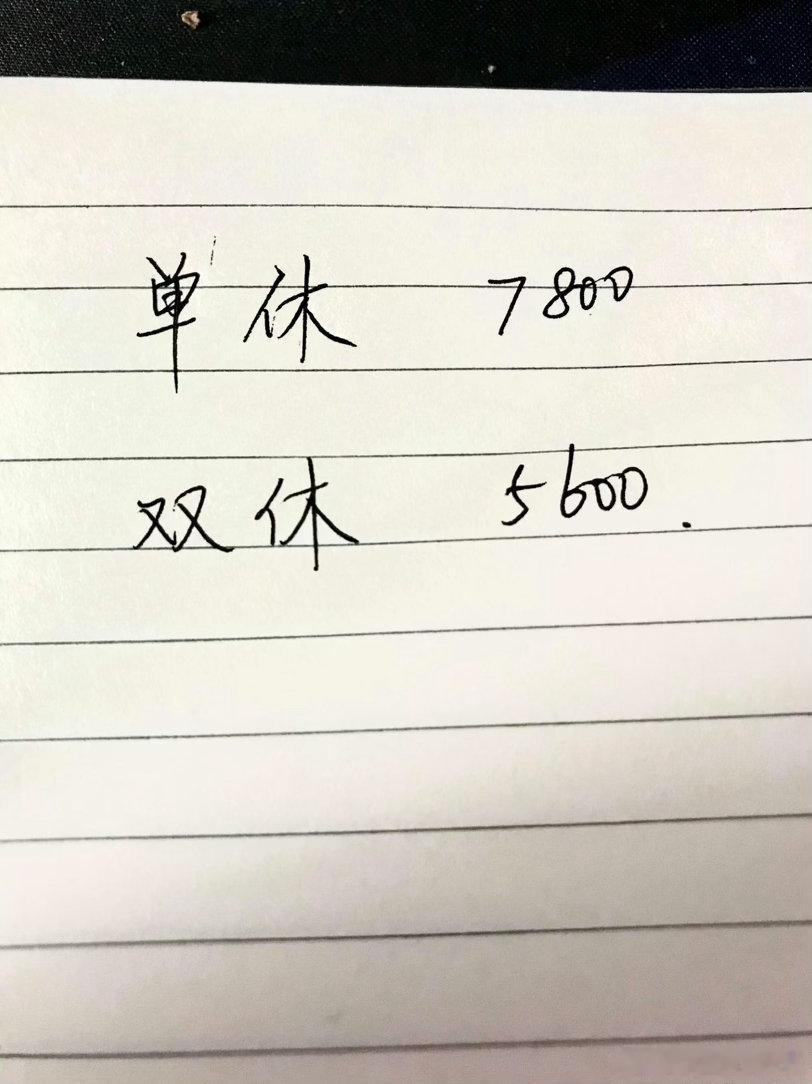 单休 7800
双休 5600.